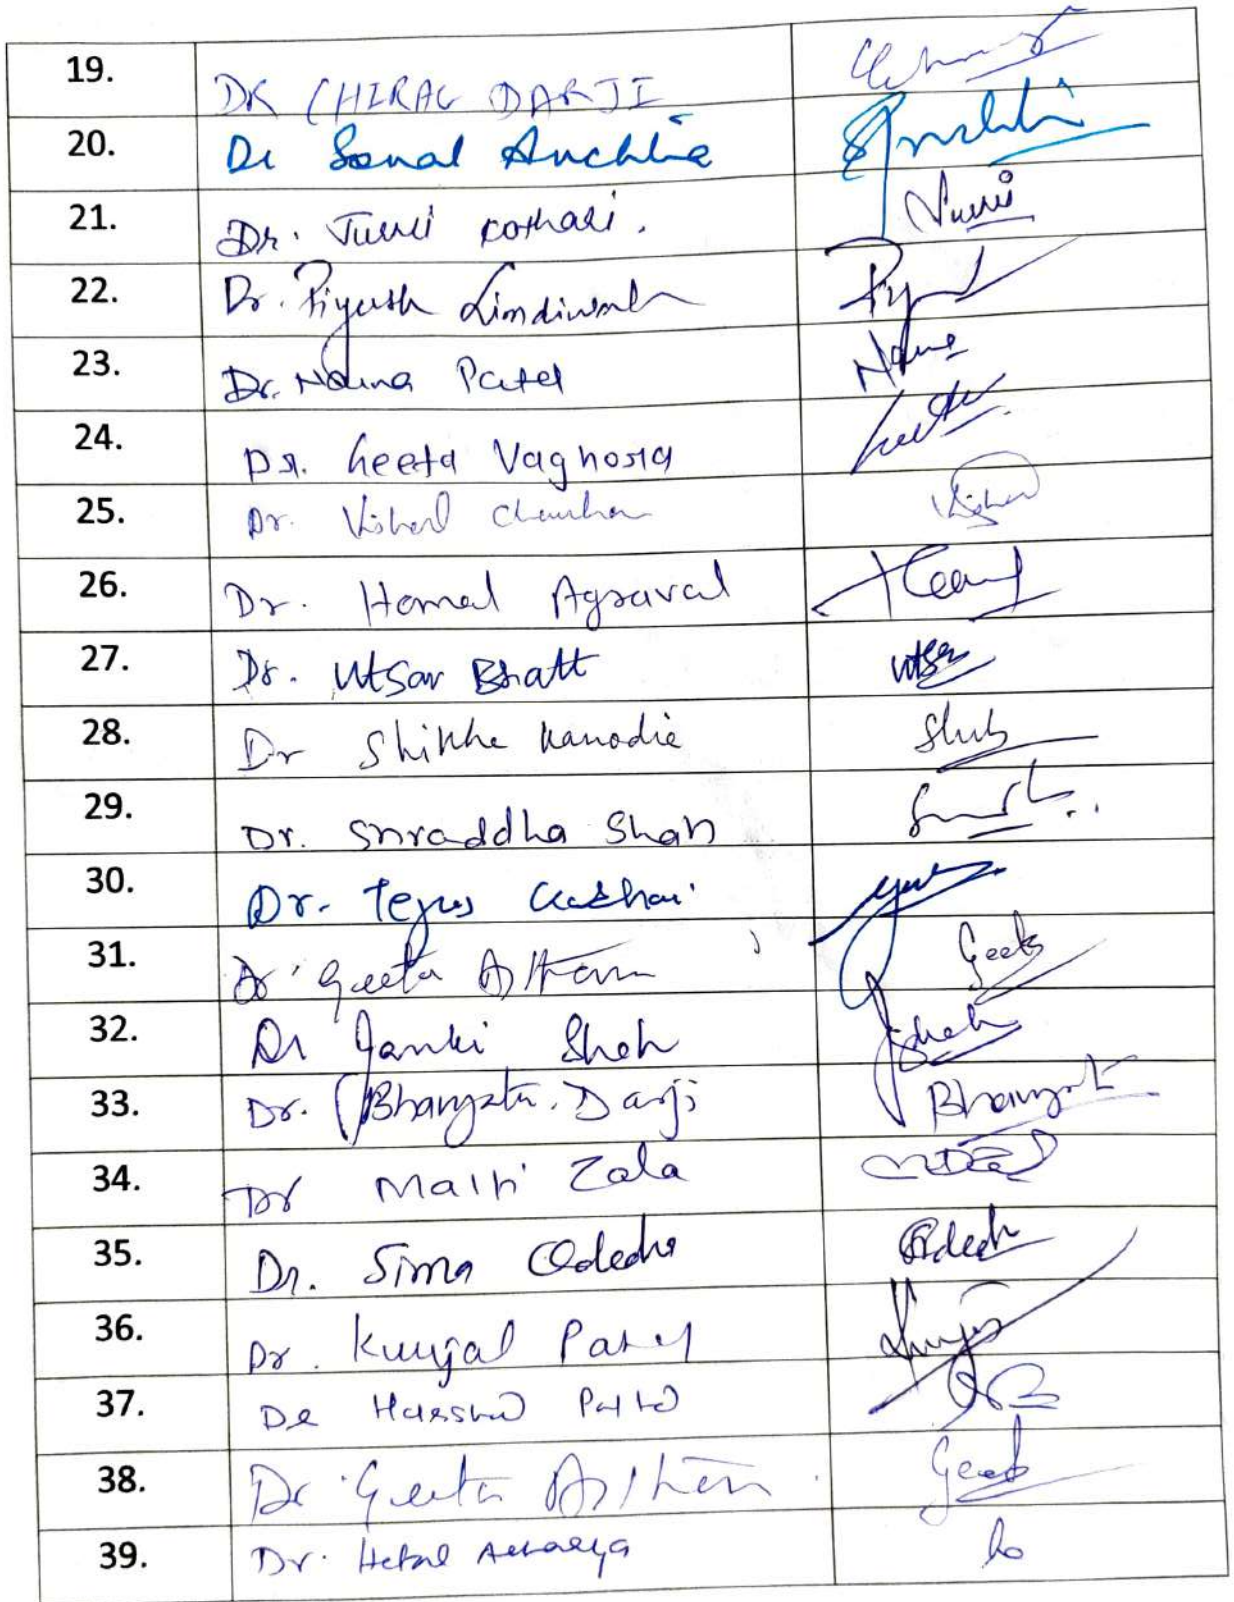 19. DR CHIRAG DARJI
20. Dr Sonal Anchlia Anchlia
21. Dr. Juhi Kothari.
22. Dr. Piyush Limdiwala
23. Dr. Naina Patel Naina
24. Dr. Geeta Vaghosia Geeta
25. Dr. Vishal Chauhan Vishal
26. Dr. Hemal Agraval
27. Dr. Utsav Bhatt Utsav
28. Dr Shikha Kanodia
29. Dr. Shraddha Shah
30. Dr. Tejas
31. Dr Geeta Geeta
32. Dr Janki Shah Jshah
33. Dr. Bhagyata. Darji
34. Dr Maitri Zala
35. Dr. Sima Odedra
36. Dr. Kunjal Patel
37. De Patel
38. Dr Geeta Geeta
39. Dr. Hetal Acharya